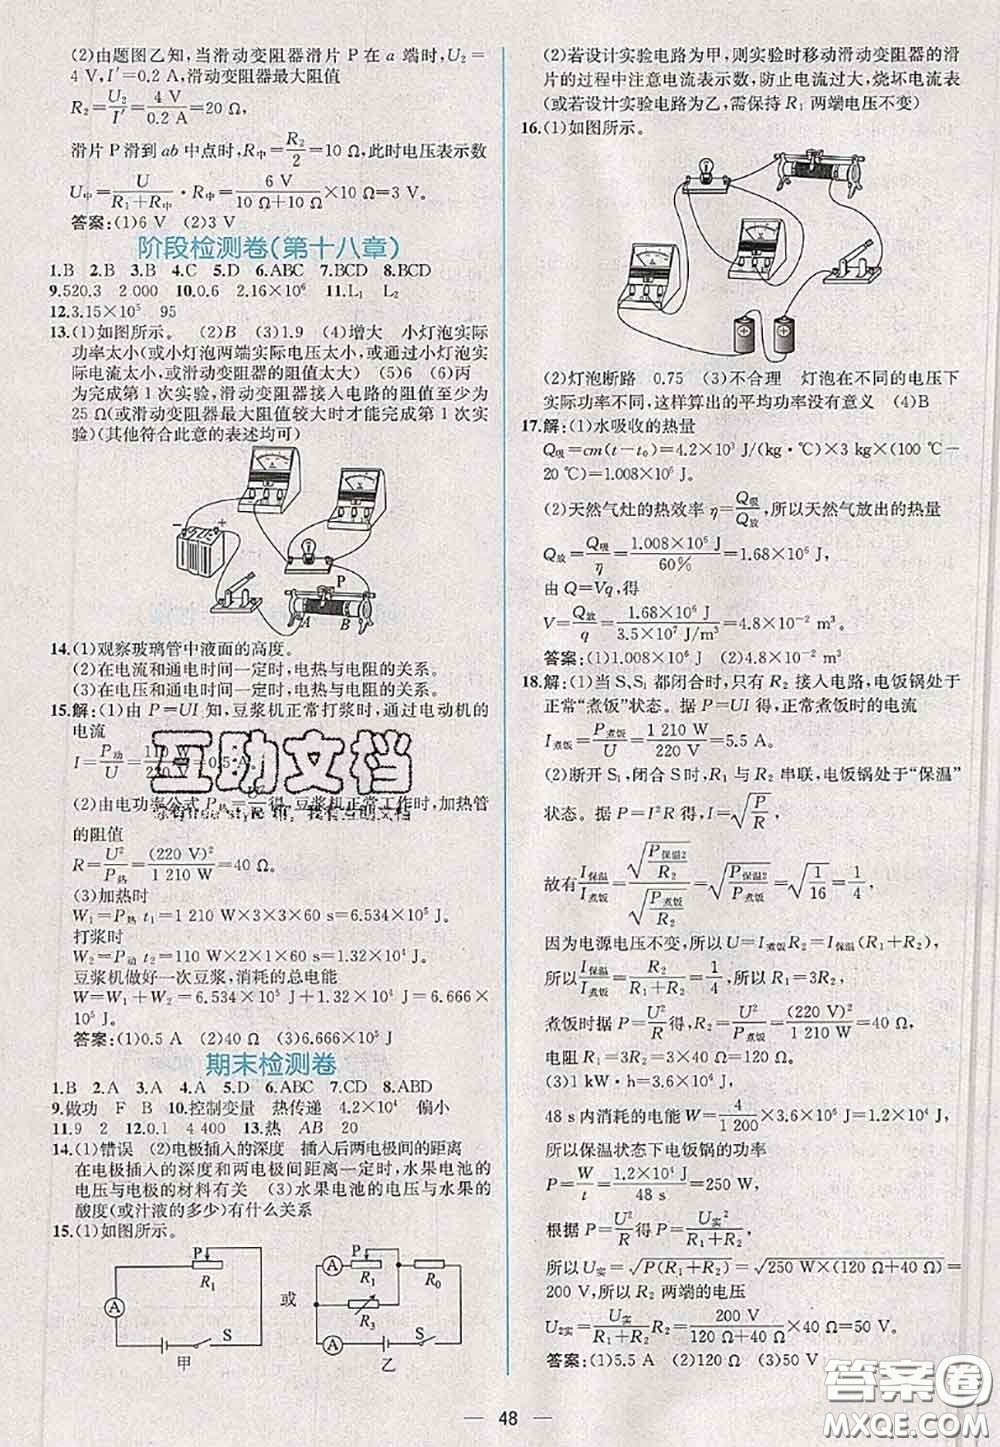 (2)由题图乙知,当滑动变阻器滑片 P 在 a 端时,U₂=
4 V,I′=0.2 A,滑动变阻器最大阻值
R₂=U₂/I′=4 V/0.2 A=20 Ω,
滑片 P 滑到 ab 中点时,R中=R₂/2=10 Ω,此时电压表示数
U中=U/(R₁+R中)·R中=6 V/(10 Ω+10 Ω)×10 Ω=3 V。
答案:(1)6 V (2)3 V
阶段检测卷(第十八章)
1.B 2.B 3.B 4.C 5.D 6.ABC 7.BCD 8.BCD
9.520.3 2 000 10.0.6 2.16×10⁶ 11.L₁ L₂
12.3.15×10⁵ 95
13.(1)如图所示。 (2)B (3)1.9 (4)增大 小灯泡实际
功率太小(或小灯泡两端实际电压太小,或通过小灯泡实
际电流太小,或滑动变阻器的阻值太大) (5)6 (6)丙
为完成第 1 次实验,滑动变阻器接入电路的阻值至少为
25 Ω(或滑动变阻器最大阻值较大时才能完成第 1 次实
验)(其他符合此意的表述均可)
− +
P
A B
14.(1)观察玻璃管中液面的高度。
(2)在电流和通电时间一定时,电热与电阻的关系。
(3)在电压和通电时间一定时,电热与电阻的关系。
15.解:(1)由 P=UI 知,豆浆机正常打浆时,通过电动机的
电流
I=P动/U=110 W/220 V=0.5 A。
(2)由电功率公式 P热= 得,豆浆机正常工作时,加热管
的阻值
R=U²/P热=(220 V)²/1 210 W=40 Ω。
(3)加热时
W₁=P热 t₁=1 210 W×3×3×60 s=6.534×10⁵ J。
打浆时
W₂=P动 t₂=110 W×2×60 s=1.32×10⁴ J。
豆浆机做好一次豆浆,消耗的总电能
W=W₁+W₂=6.534×10⁵ J+1.32×10⁴ J=6.666×
10⁵ J。
答案:(1)0.5 A (2)40 Ω (3)6.666×10⁵ J
期末检测卷
1.B 2.A 3.A 4.A 5.D 6.ABC 7.CD 8.ABD
9.做功 F B 10.控制变量 热传递 4.2×10⁴ 偏小
11.9 2 12.0.1 4 400 13.热 AB 20
14.(1)错误 (2)电极插入的深度 插入后两电极间的距离
在电极插入的深度和两电极间距离一定时,水果电池的
电压与电极的材料有关 (3)水果电池的电压与水果的
酸度(或汁液的多少)有什么关系
15.(1)如图所示。
P R₁ A S 甲
或
A P R₁ R₀ R₃ S 乙
(2)若设计实验电路为甲,则实验时移动滑动变阻器的滑
片的过程中注意电流表示数,防止电流过大,烧坏电流表
(或若设计实验电路为乙,需保持 R₁ 两端电压不变)
16.(1)如图所示。
(2)灯泡断路 0.75 (3)不合理 灯泡在不同的电压下
实际功率不同,这样算出的平均功率没有意义 (4)B
17.解:(1)水吸收的热量
Q吸=cm(t−t₀)=4.2×10³ J/(kg·℃)×3 kg×(100−
20 ℃)=1.008×10⁶ J。
(2)天然气灶的热效率 η=Q吸/Q放,所以天然气放出的热量
Q放=Q吸/η=1.008×10⁶ J/60%=1.68×10⁶ J,
由 Q=Vq,得
V=Q放/q=1.68×10⁶ J/3.5×10⁷ J/m³=4.8×10⁻² m³。
答案:(1)1.008×10⁶ J (2)4.8×10⁻² m³
18.解:(1)当 S、S₁ 都闭合时,只有 R₂ 接入电路,电饭锅处于
正常“煮饭”状态。据 P=UI 得,正常煮饭时的电流
I煮饭=P煮饭/U=1 210 W/220 V=5.5 A。
(2)断开 S₁,闭合 S 时,R₁ 与 R₂ 串联,电饭锅处于“保温”
状态。据 P=I²R 得,I=√(P/R),
故有 I保温/I煮饭=√(P保温2/R₂)/√(P煮饭/R₂)=√(P保温2/P煮饭)=√(1/16)=1/4,
因为电源电压不变,所以 U=I煮饭R₂=I保温(R₁+R₂),
所以 I保温/I煮饭=R₂/(R₁+R₂)=1/4,所以 R₁=3R₂。
煮饭时据 P=U²/R 得,R₂=U²/P煮饭=(220 V)²/1 210 W=40 Ω,
电阻 R₁=3R₂=3×40 Ω=120 Ω。
(3)1 kW·h=3.6×10⁶ J,
48 s 内消耗的电能 W=4/1 200×3.6×10⁶ J=1.2×10⁴ J,
所以保温状态下电饭锅的功率
P=W/t=1.2×10⁴ J/48 s=250 W,
根据 P=U²/R 得 P=U实²/(R₁+R₂),
所以 U实=√(P(R₁+R₂))=√(250 W×(120 Ω+40 Ω))=
200 V,所以 R₂ 两端的电压
U2实=U实/(R₁+R₂)R₂=200 V/(120 Ω+40 Ω)×40 Ω=50 V。
答案:(1)5.5 A (2)120 Ω (3)50 V
48
互助文档
答案圈
MXQE.COM